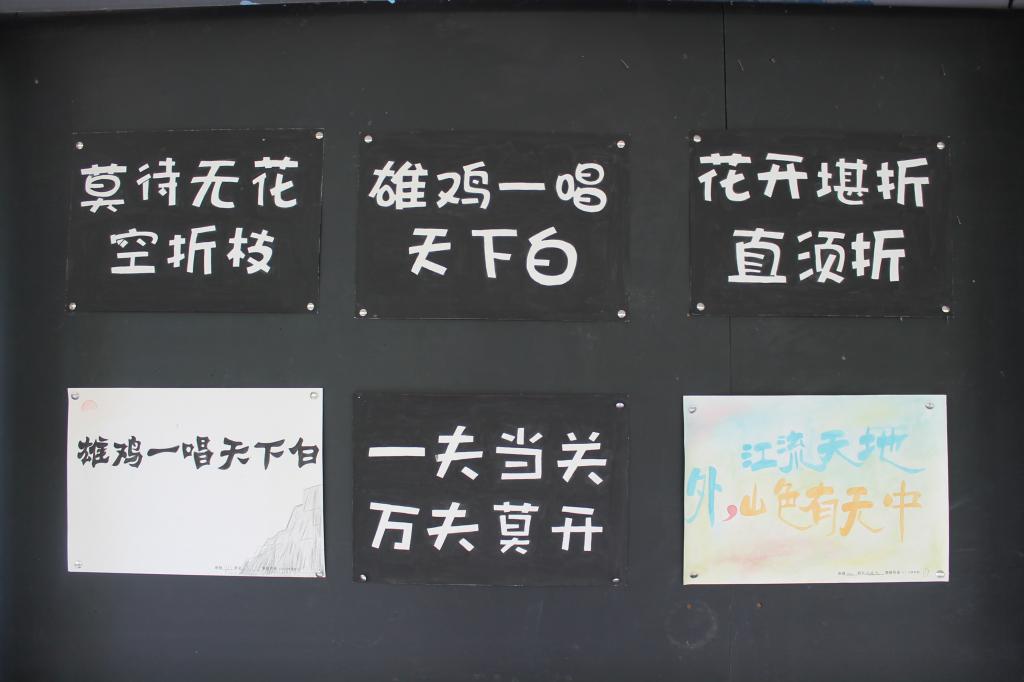 莫待无花
空折枝
雄鸡一唱
天下白
花开堪折
直须折
雄鸡一唱天下白
一夫当关
万夫莫开
江流天地
外,山色有天中